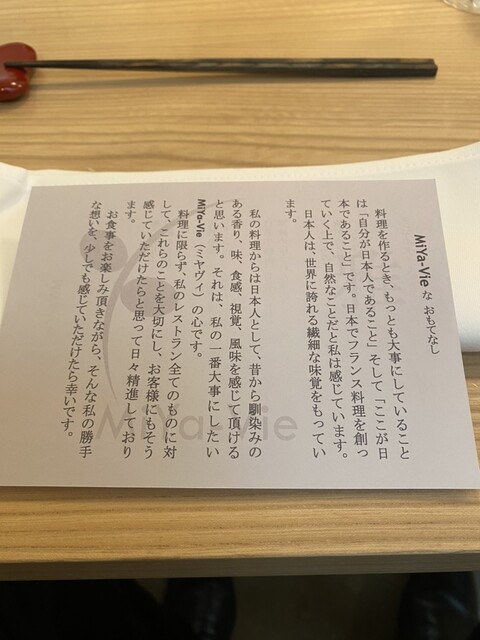 MiYa-Vie な おもてなし
料理を作るとき、もっとも大事にしていること
は「自分が日本人であること」そして「ここが日
本であること」です。日本でフランス料理を創っ
ていく上で、自然なことだと私は感じています。
日本人は、世界に誇れる繊細な味覚をもってい
ます。
私の料理からは日本人として、昔から馴染みの
ある香り、味、食感、視覚、風味を感じて頂ける
と思います。それは、私の一番大事にしたい
MiYa-Vie（ミヤヴィ）の心です。
料理に限らず、私のレストラン全てのものに対
して、これらのことを大切にし、お客様にもそう
感じていただけたらと思って日々精進しており
ます。
お食事をお楽しみ頂きながら、そんな私の勝手
な想いを、少しでも感じていただけたら幸いです。
MiYa-Vie